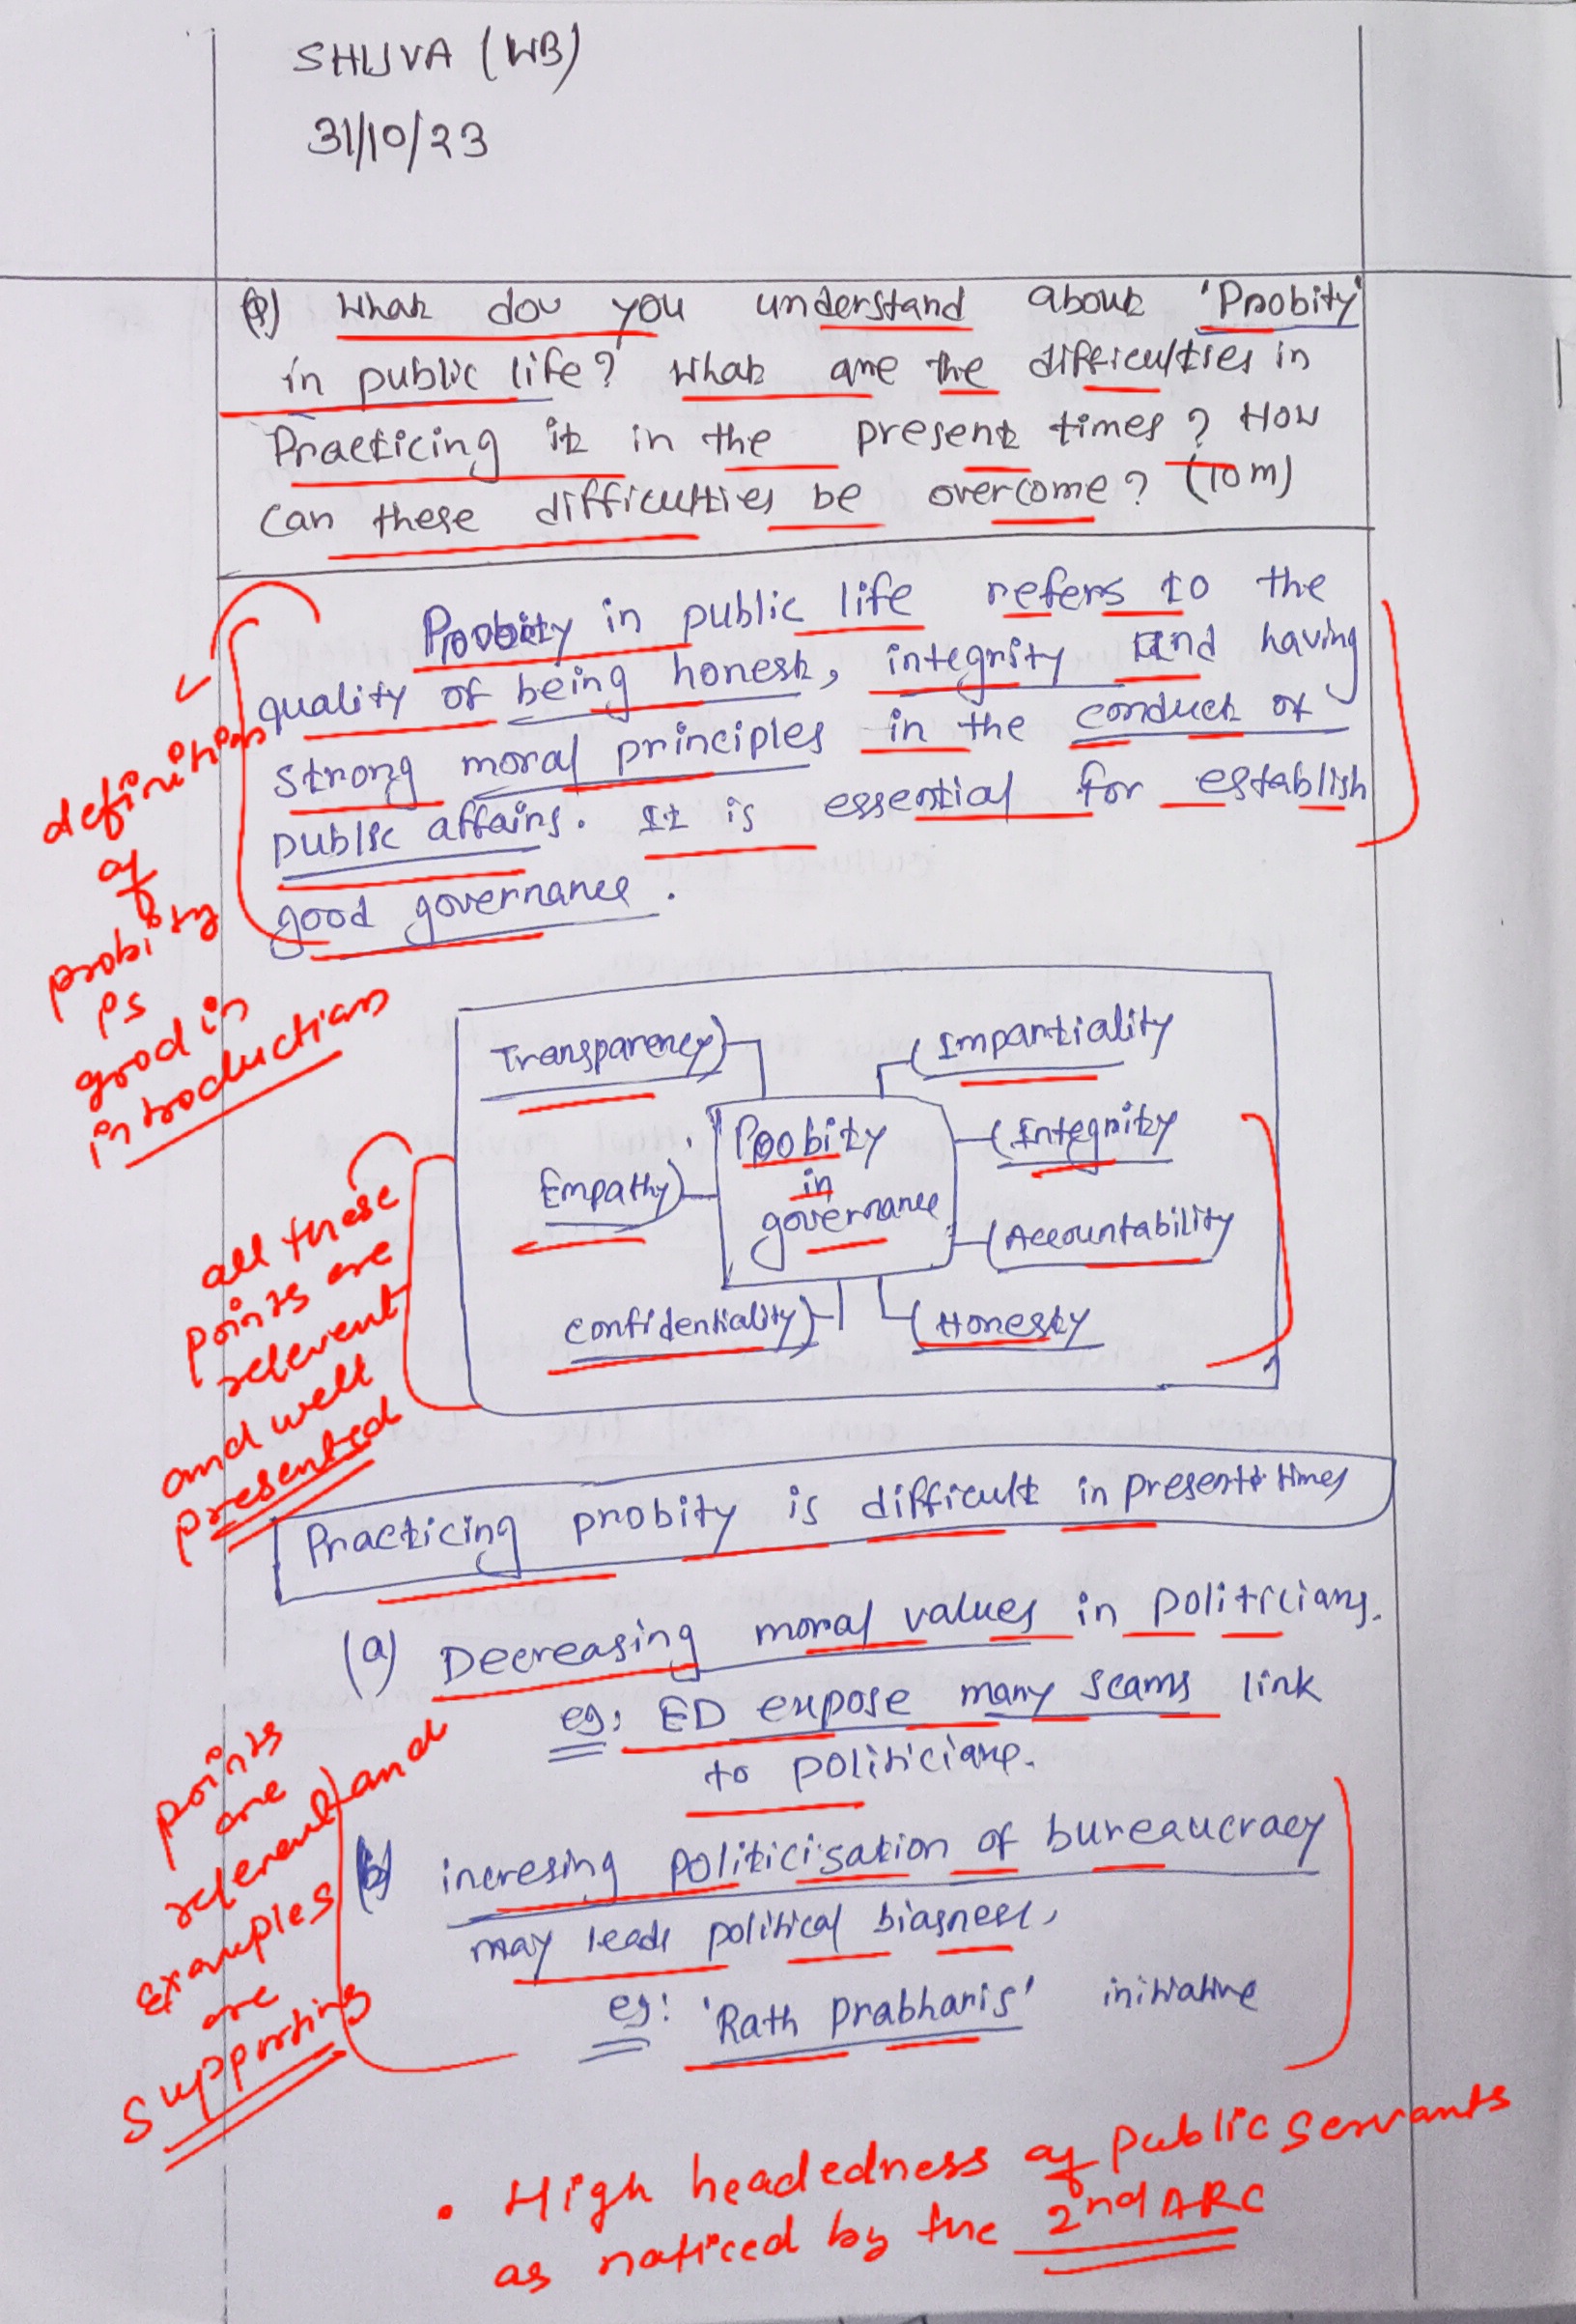 SHUVA (WB)
31/10/23
Q) What dou you understand about 'Probity'
in public life? What are the difficulties in
Practicing it in the present times? How
can these difficulties be overcome? (10m)
Probity in public life refers to the
quality of being honest, integrity and having
strong moral principles in the conduct of
public affairs. It is essential for establish
good governance.
definition
of
probity
is
good in
introduction
Transparency
Impartiality
Probity
in
governance
Integrity
Empathy
Accountability
Confidentiality
Honesty
all these
points are
relevent
and well
presented
Practicing probity is difficult in present times
(a) Decreasing moral values in politicians.
eg: ED expose many scams link
to politicians.
(b) incresing politicisation of bureaucracy
may leads political biasness,
eg: 'Rath Prabharis' initiative
points
are
relevent and
examples
are
supporting
• High headedness of public servants
as noticed by the 2nd ARC